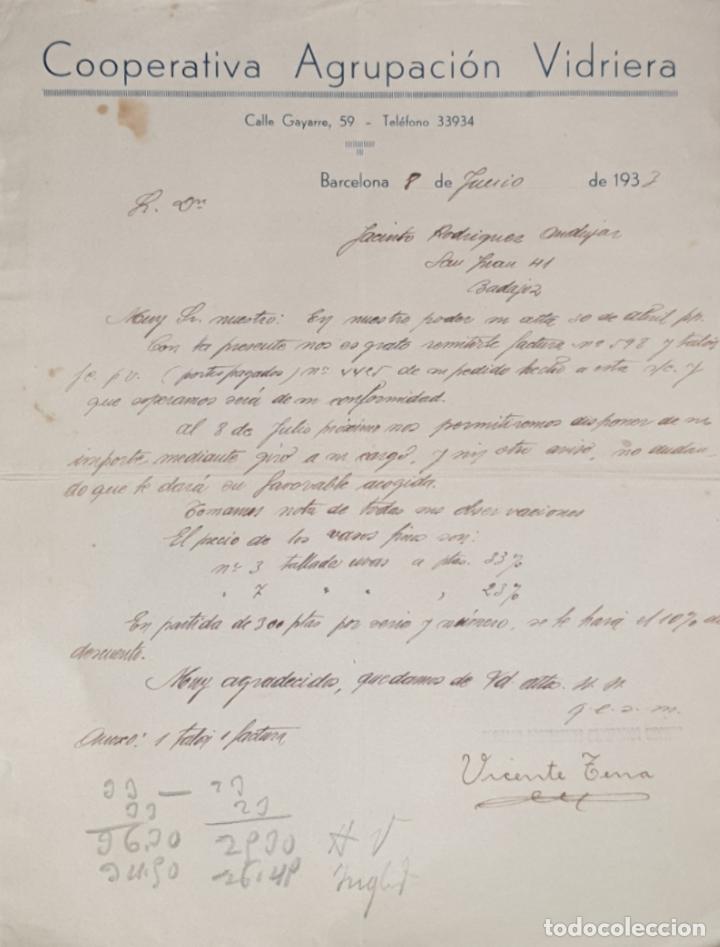 Cooperativa Agrupación Vidriera
Calle Gayarre, 59 - Teléfono 33934
Barcelona 8 de Junio de 1933
S. Dn
Jacinto Rodriguez Andujar
San Juan 41
Badajoz
Muy Sr. nuestro: En nuestro poder su atta 30 de Abril pp.
Con la presente nos es grato remitirle factura nº 598 y talón
f.c. p.v. (portes pagados) nº de su pedido hecho a esta s/c. y
que esperamos será de su conformidad.
Al 8 de Julio próximo nos permitiremos disponer de su
importe mediante giro a su cargo, y sin otro aviso, no dudan-
do que le dará su favorable acogida.
Tomamos nota de todas sus observaciones
El precio de los vasos finos son:
nº 3 tallado uvas a ptas.
" 7 " " "
En partida de 300 ptas por serie y número, se le hará el 10% de
descuento.
Muy agradecidos, quedamos de Vd. atts. s. s.
q.e.s.m.
Anexo: 1 talón 1 factura
Vicente Terra
todocoleccion